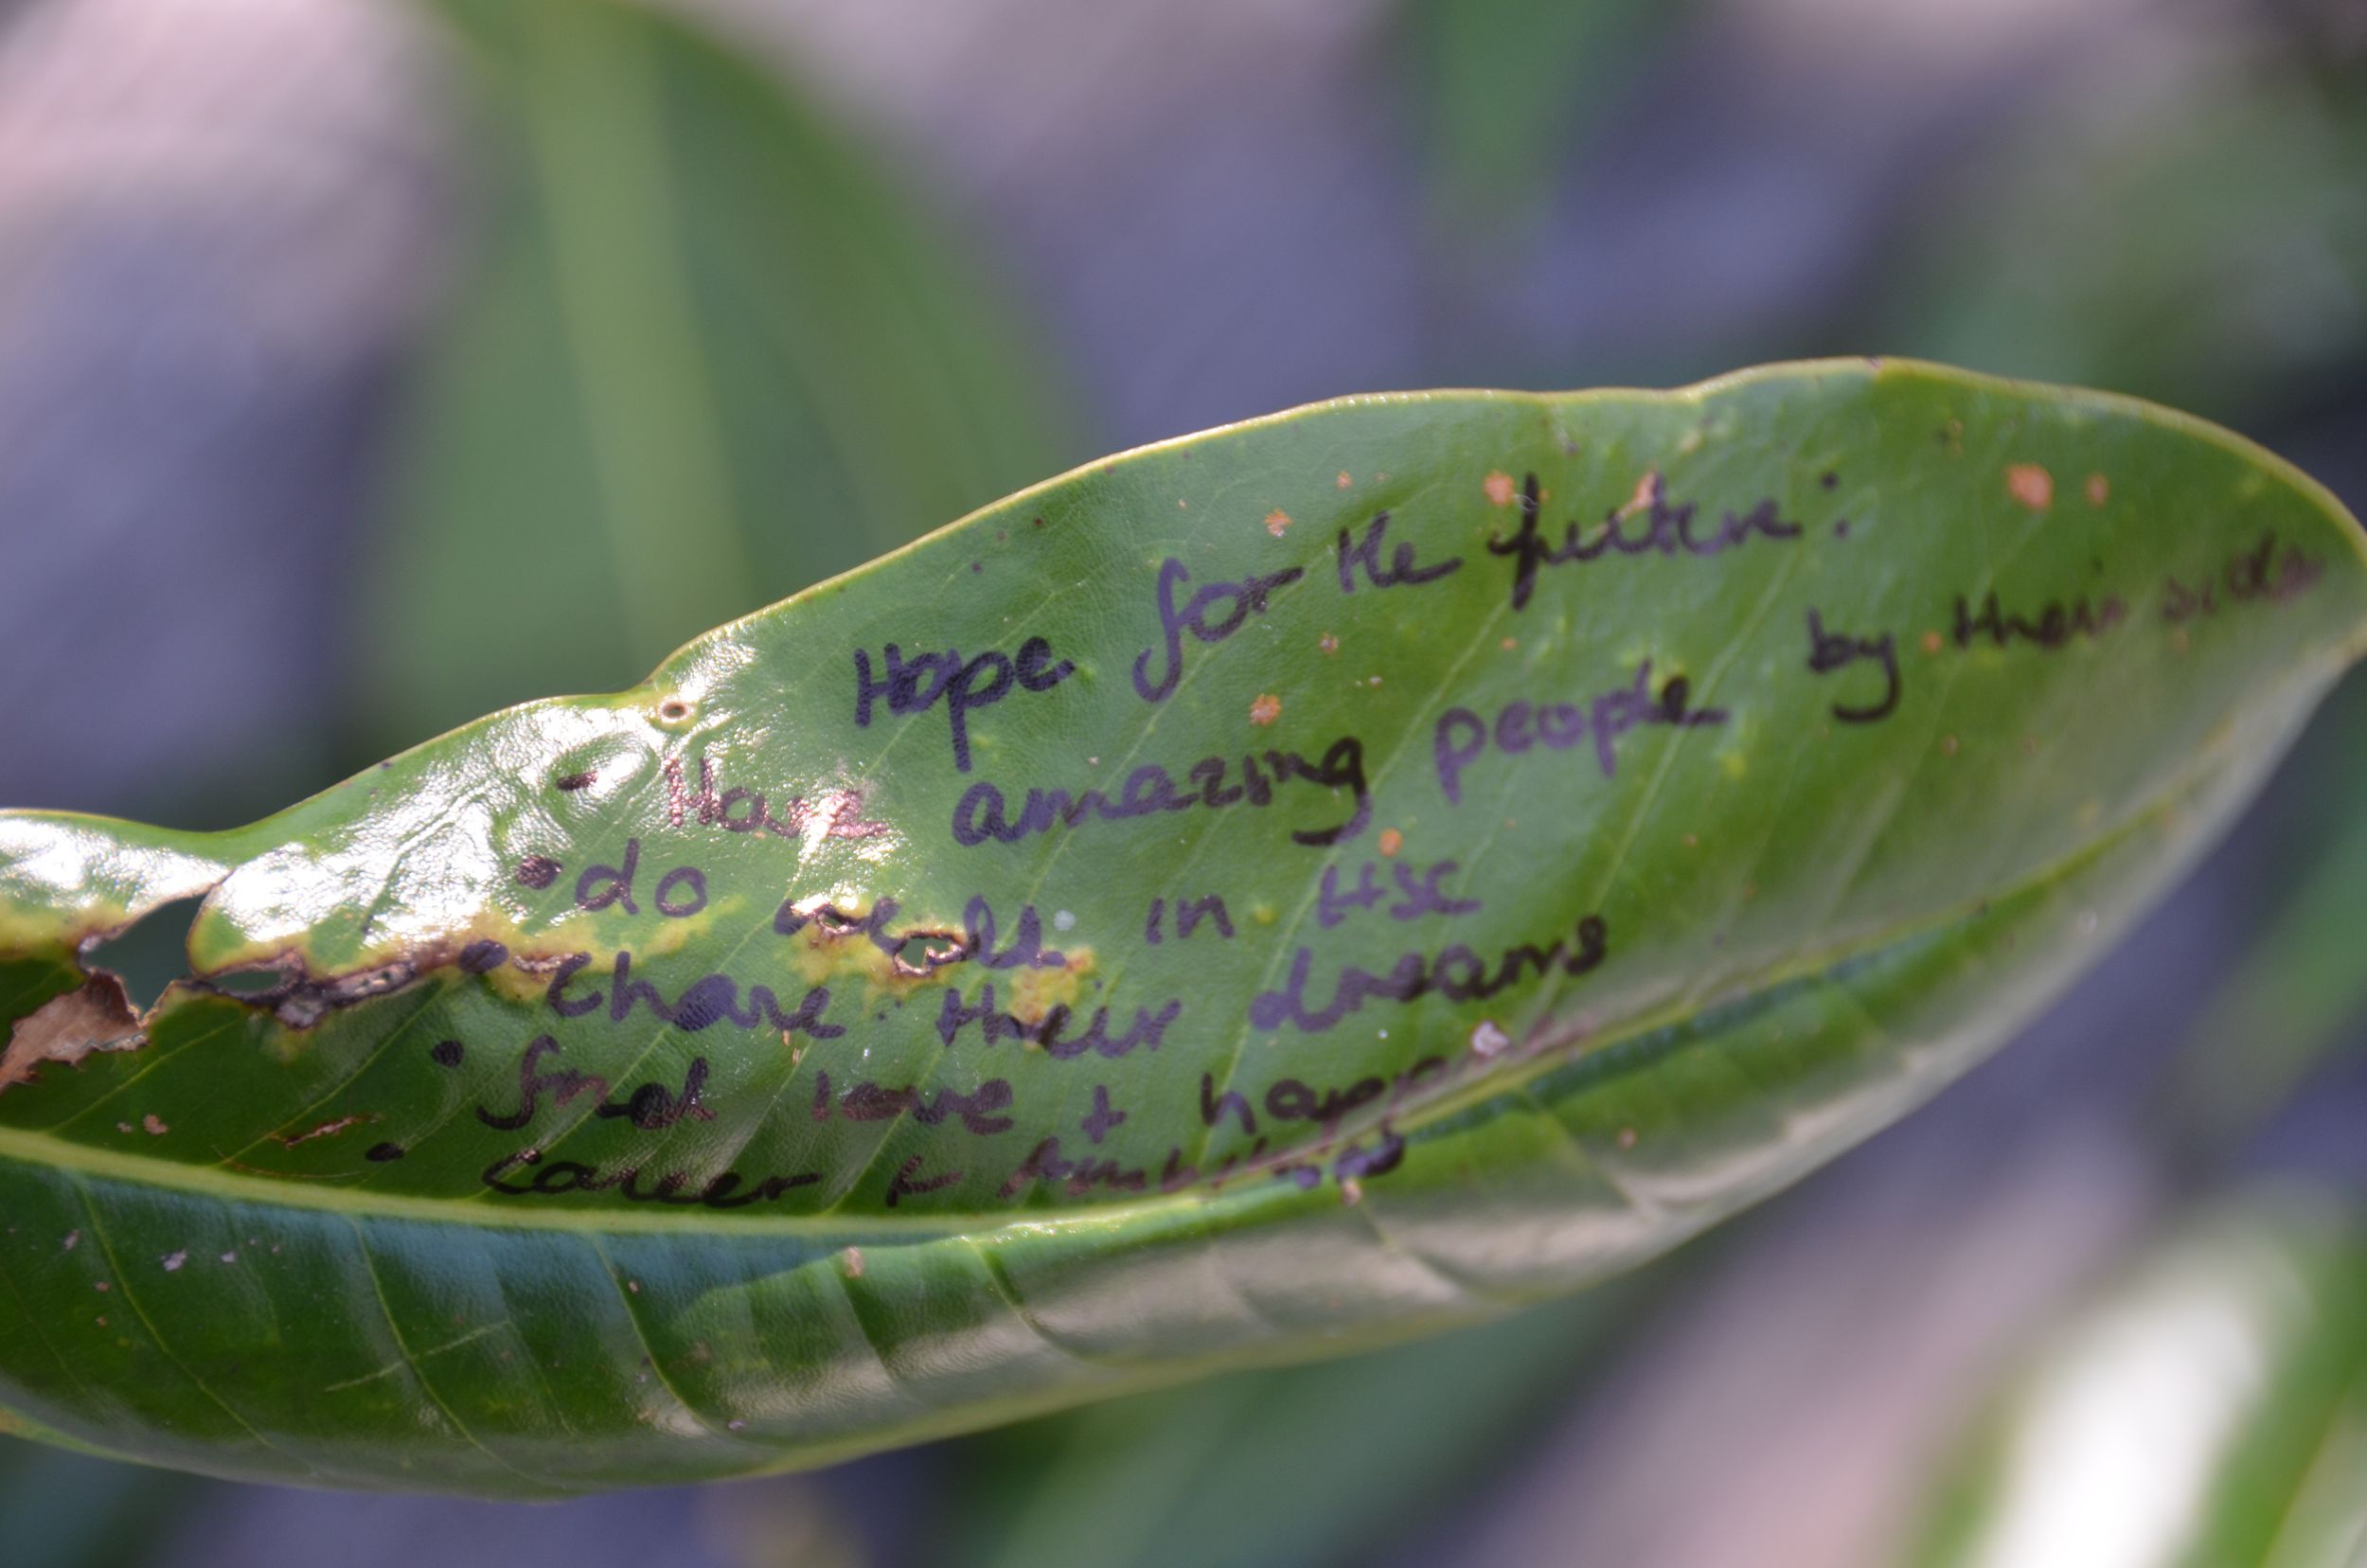 Hope for the future:
- Have amazing people by their side
• do well in HSC
• chase their dreams
• find love + happ
• career +